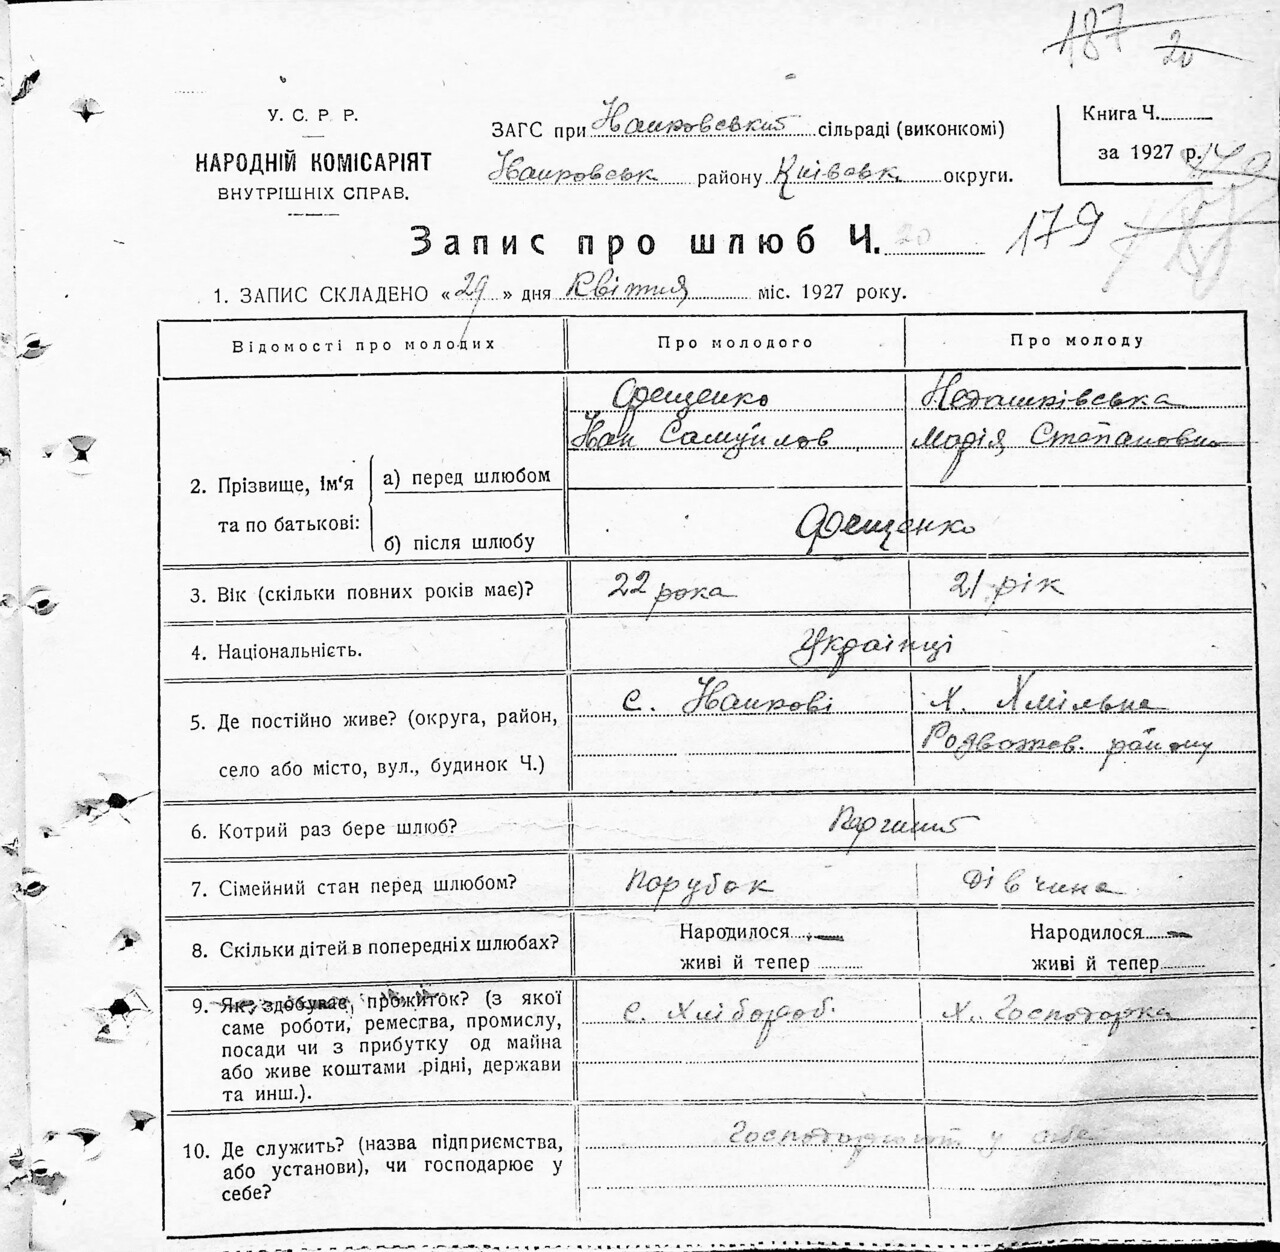 187
20
У. С. Р. Р.
НАРОДНІЙ КОМІСАРІЯТ
ВНУТРІШНІХ СПРАВ.
ЗАГС при сільраді (виконкомі)
району Київськ. округи.
Книга Ч.
за 1927 р.
Запис про шлюб Ч. 20 179
1. ЗАПИС СКЛАДЕНО « 29 » дня Квітня міс. 1927 року.
Відомості про молодих Про молодого Про молоду
2. Прізвище, ім‘я та по батькові:
а) перед шлюбом
Орещенко
Іван Самуилов
Недашківська
Марія Степановна
б) після шлюбу Орещенко
3. Вік (скільки повних років має)? 22 рока 21 рік
4. Національність. Українці
5. Де постійно живе? (округа, район,
село або місто, вул., будинок Ч.)
с.
Х. Хмільна
Розважев. району
6. Котрий раз бере шлюб?
7. Сімейний стан перед шлюбом? парубок дівчина
8. Скільки дітей в попередніх шлюбах? Народилося — Народилося —
живі й тепер живі й тепер
9. Як здобуває прожиток? (з якої с. Хлібороб. Х. Господарка
саме роботи, ремества, промислу,
посади чи з прибутку од майна
або живе коштами рідні, держави
та инш.).
10. Де служить? (назва підприємства, Господарюют у себе
або установи), чи господарює у
себе?